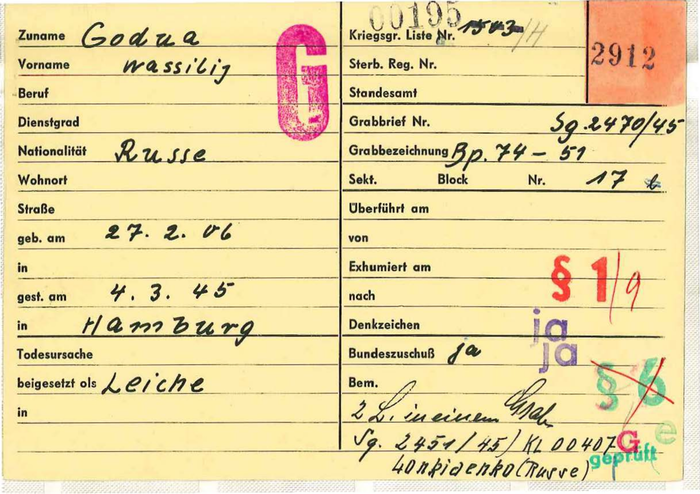 Zuname Godua
Vorname Wassilij
Beruf
Dienstgrad
Nationalität Russe
Wohnort
Straße
geb. am 27. 2. 06
in
gest. am 4. 3. 45
in Hamburg
Todesursache
beigesetzt als Leiche
in
G
00195
Kriegsgr. Liste Nr. 1543/H
2912
Sterb. Reg. Nr.
Standesamt
Grabbrief Nr. Sg. 2470/45
Grabbezeichnung Bp. 74 – 51
Sekt. Block Nr. 17
Überführt am
von
Exhumiert am
§ 1/9
nach
Denkzeichen ja
Bundeszuschuß ja ja
Bem. § 6
2 L. in einem Grab
Sg. 2451/45/ KL 00407 G e
geprüft
(Russe)